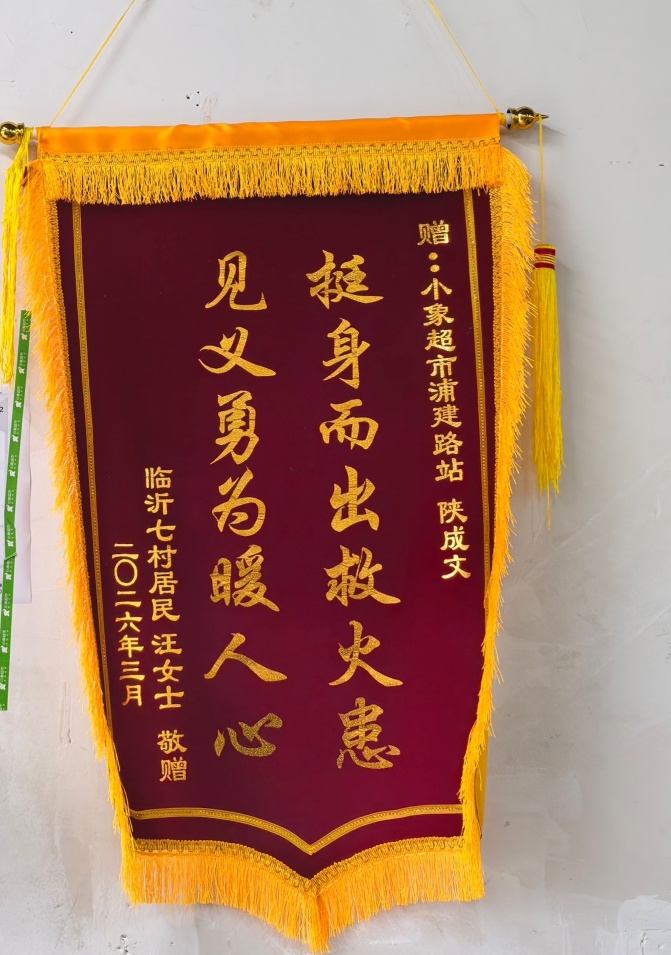 赠：小象超市浦建路站 陕成文
挺身而出救火患
见义勇为暖人心
临沂七村居民汪女士 敬赠
二〇二六年三月